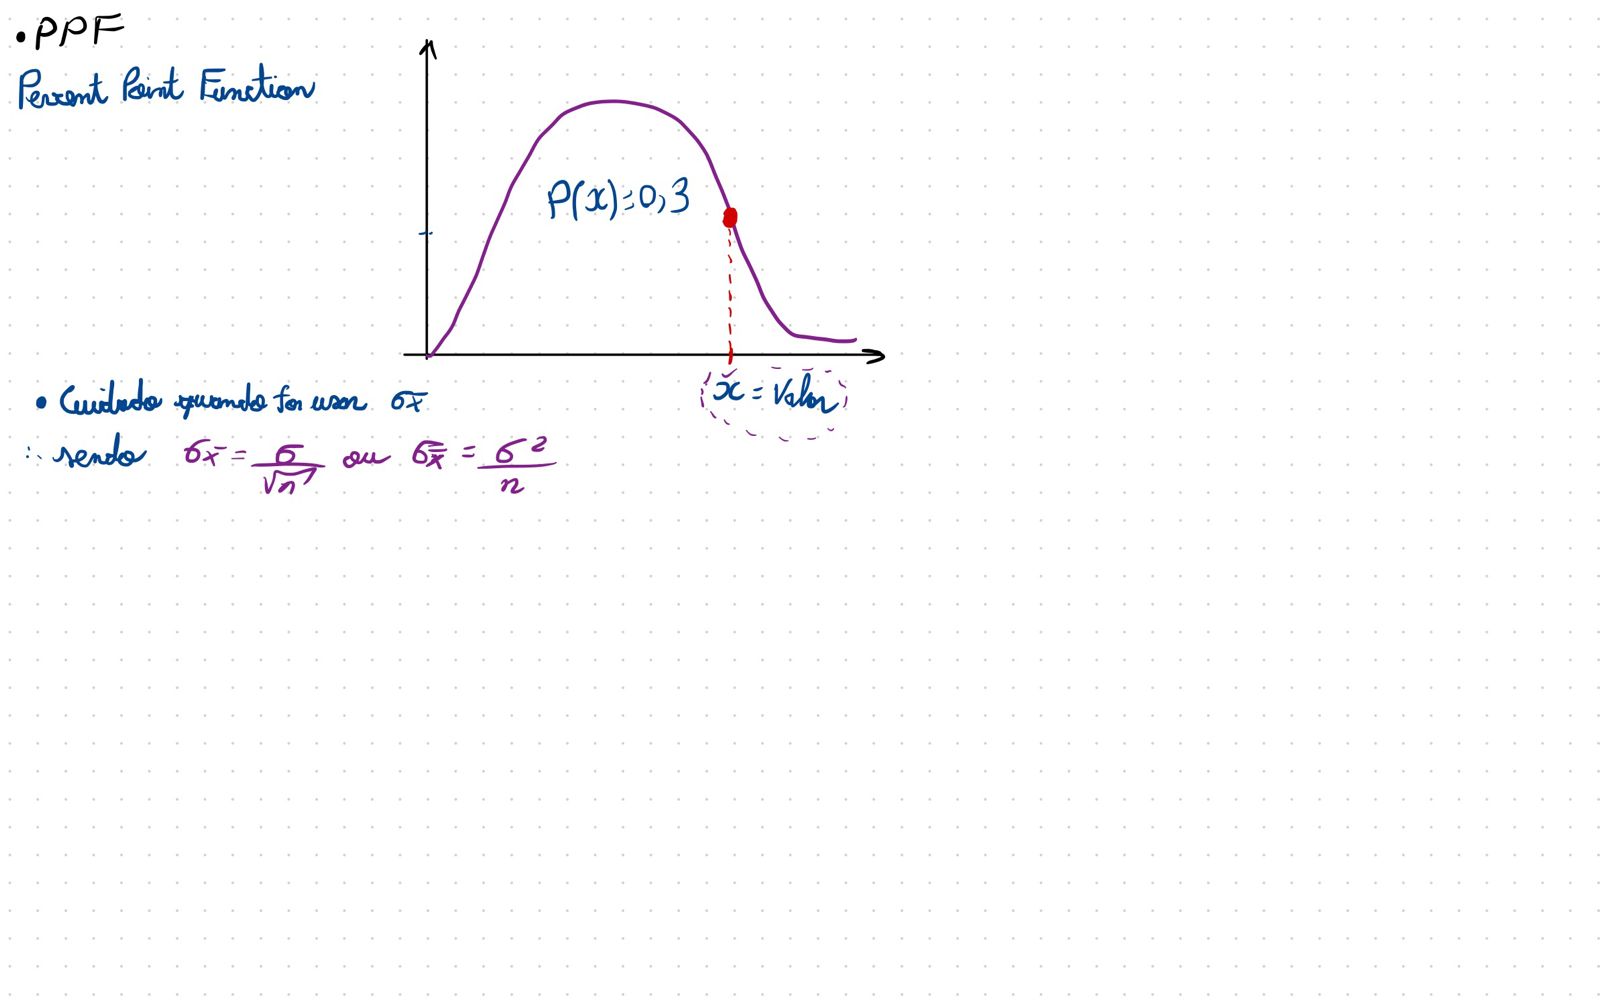 • PPF
Percent Point Function
P(x)=0,3
x = Valor
• Cuidado quando for usar σx̄
∴ sendo σx̄ = σ/√n ou σx̄ = σ²/n